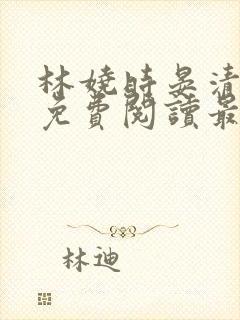 林嬈時晏清
免費閱讀最
林迪